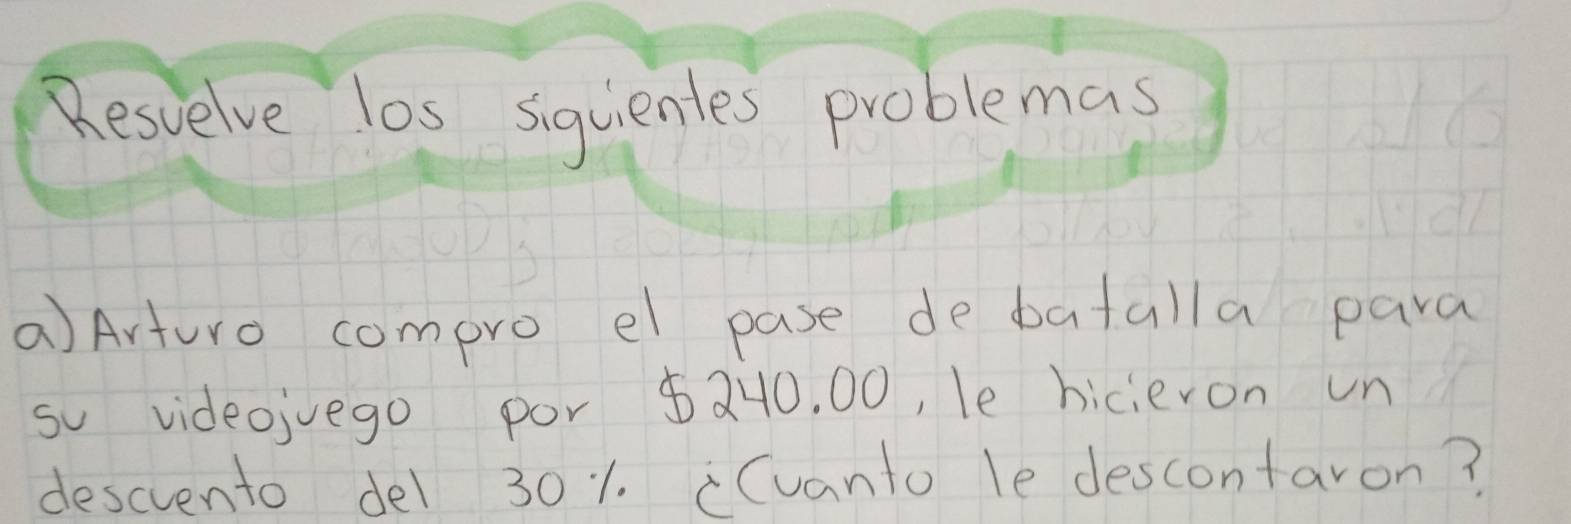 Resuelve los siguientes problemas
a) Arturo compro el pase de batalla para
su videojuego por $240.00, le hicieron un
descuento del 30% ¿Cuanto le descontaron?